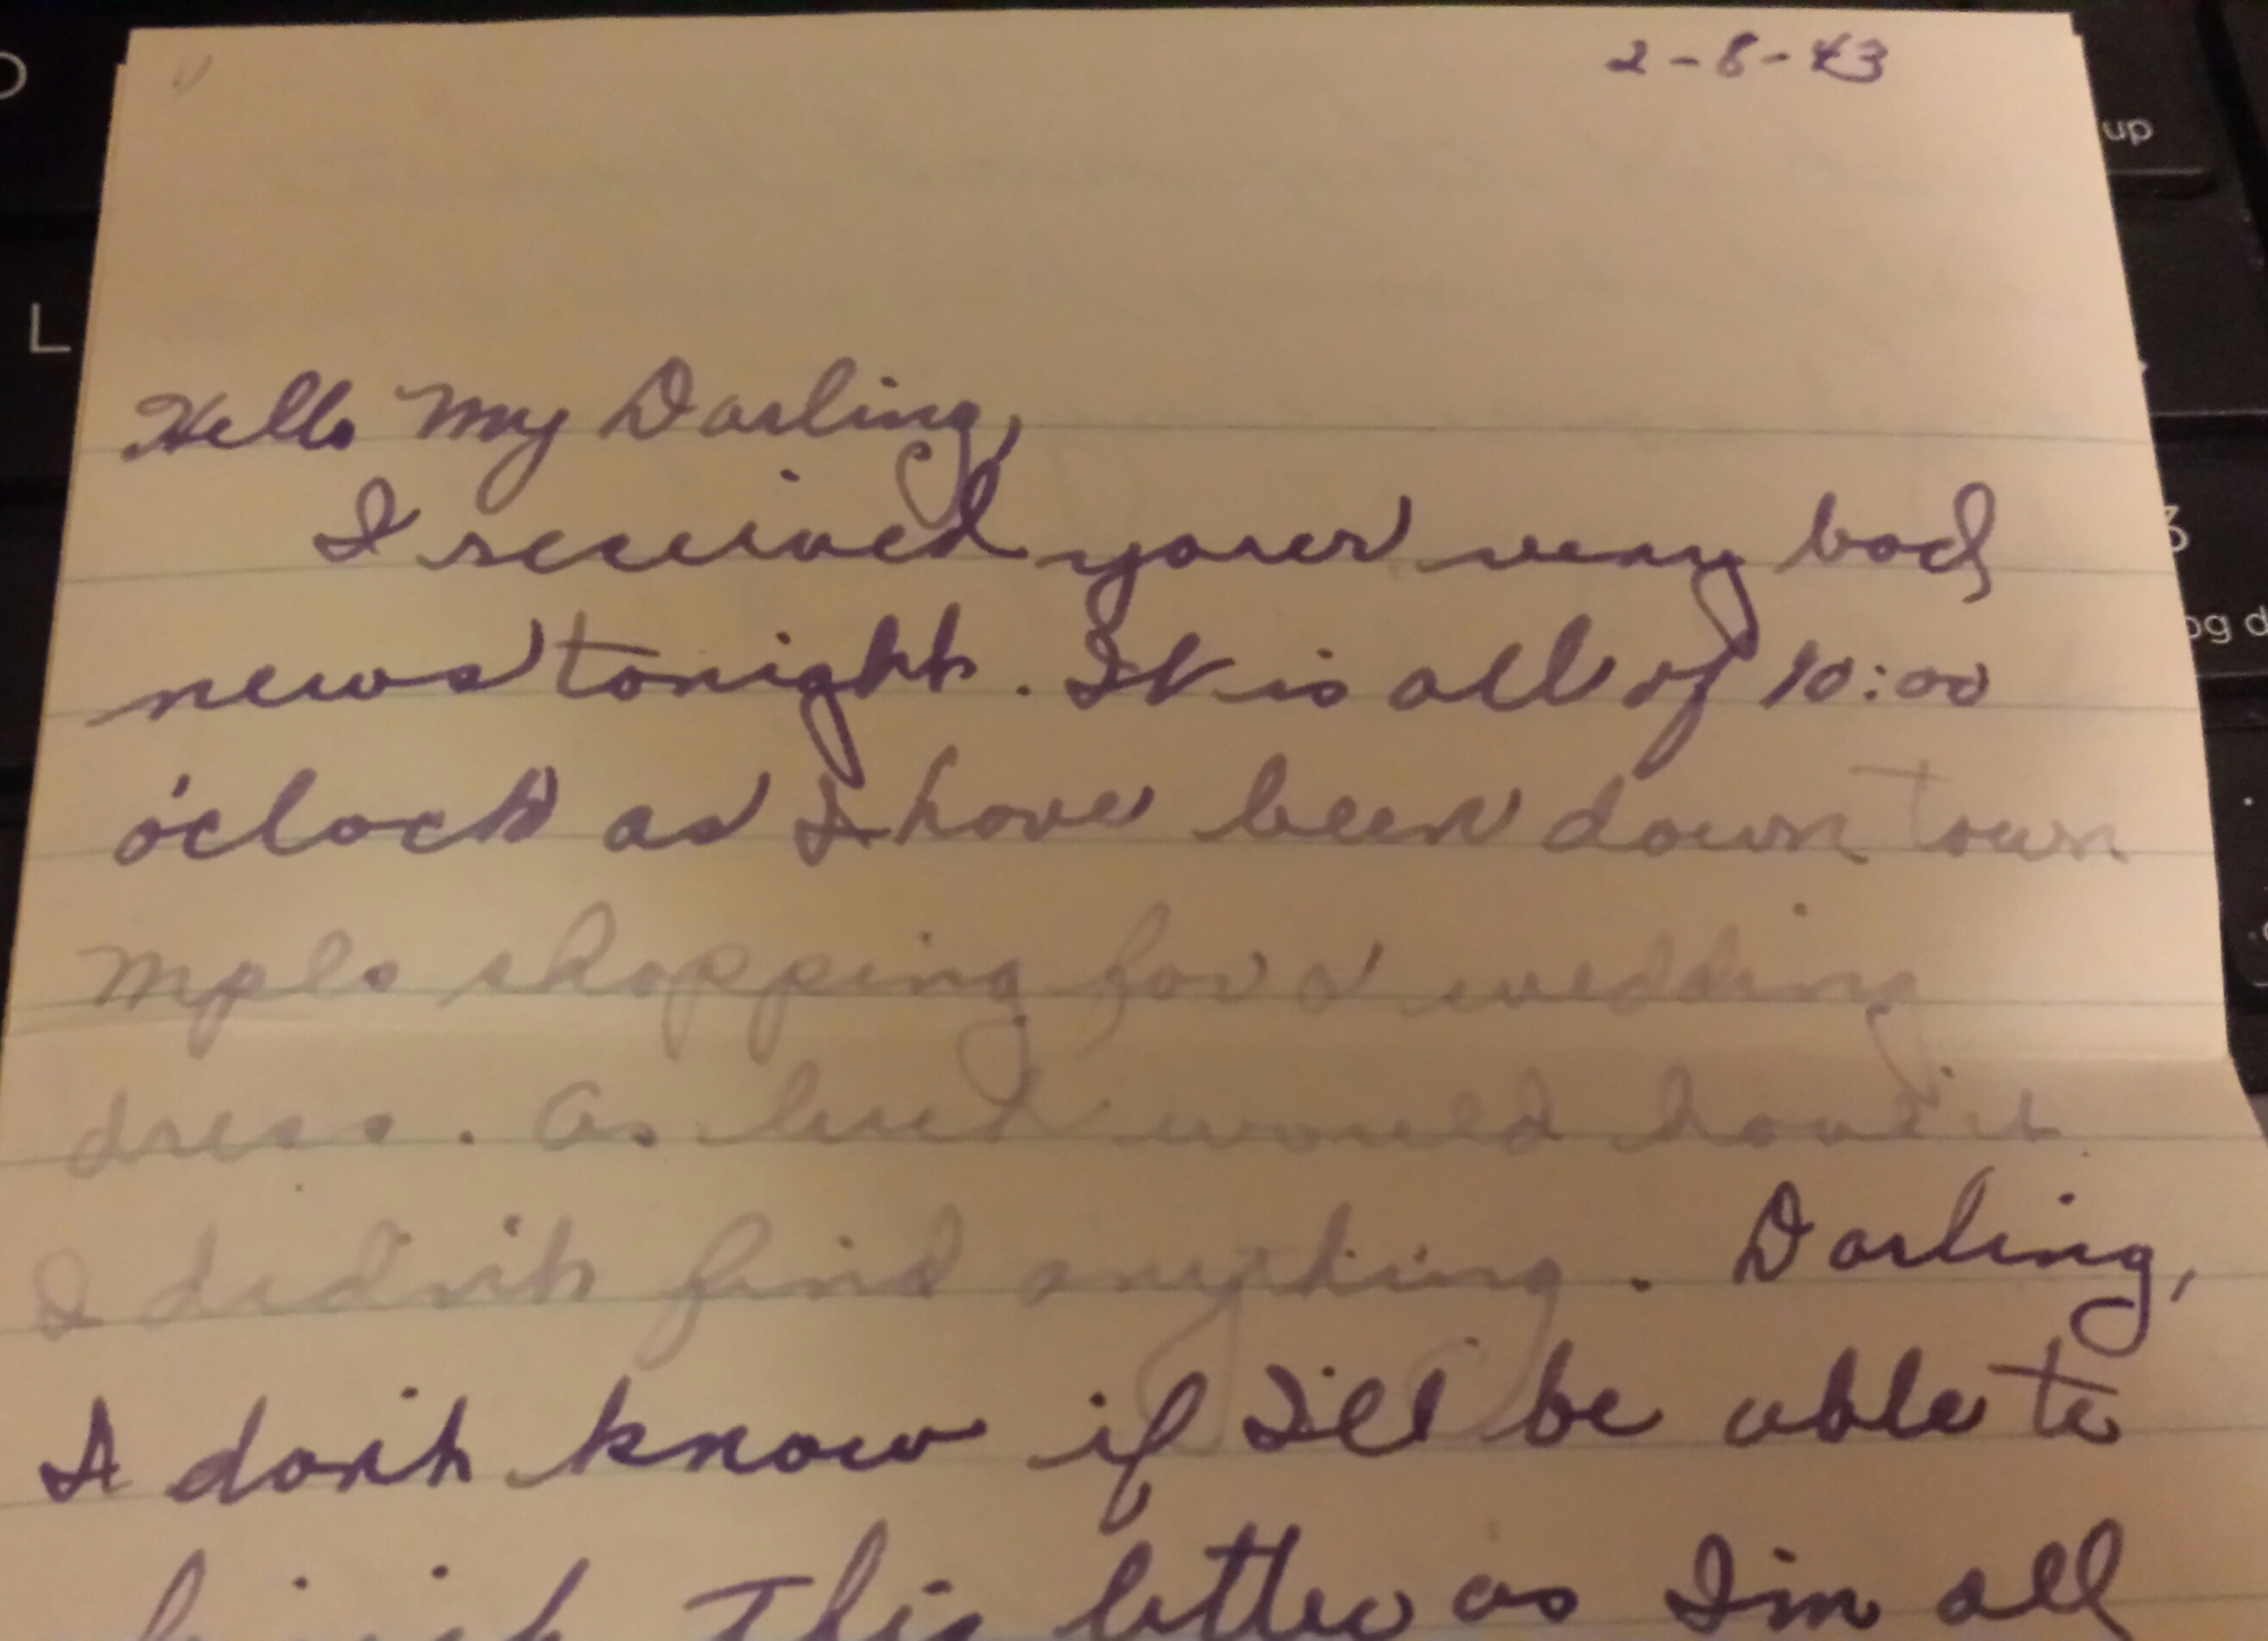 1)
2-8-43
Hello My Darling,
I received your very bad
news tonight. It is all of 10:00
o'clock as I have been down town
Mpls shopping for a wedding
dress. As luck would have it
I didn't find anything. Darling,
I don't know if I'll be able to
finish this letter as I'm all
L
up